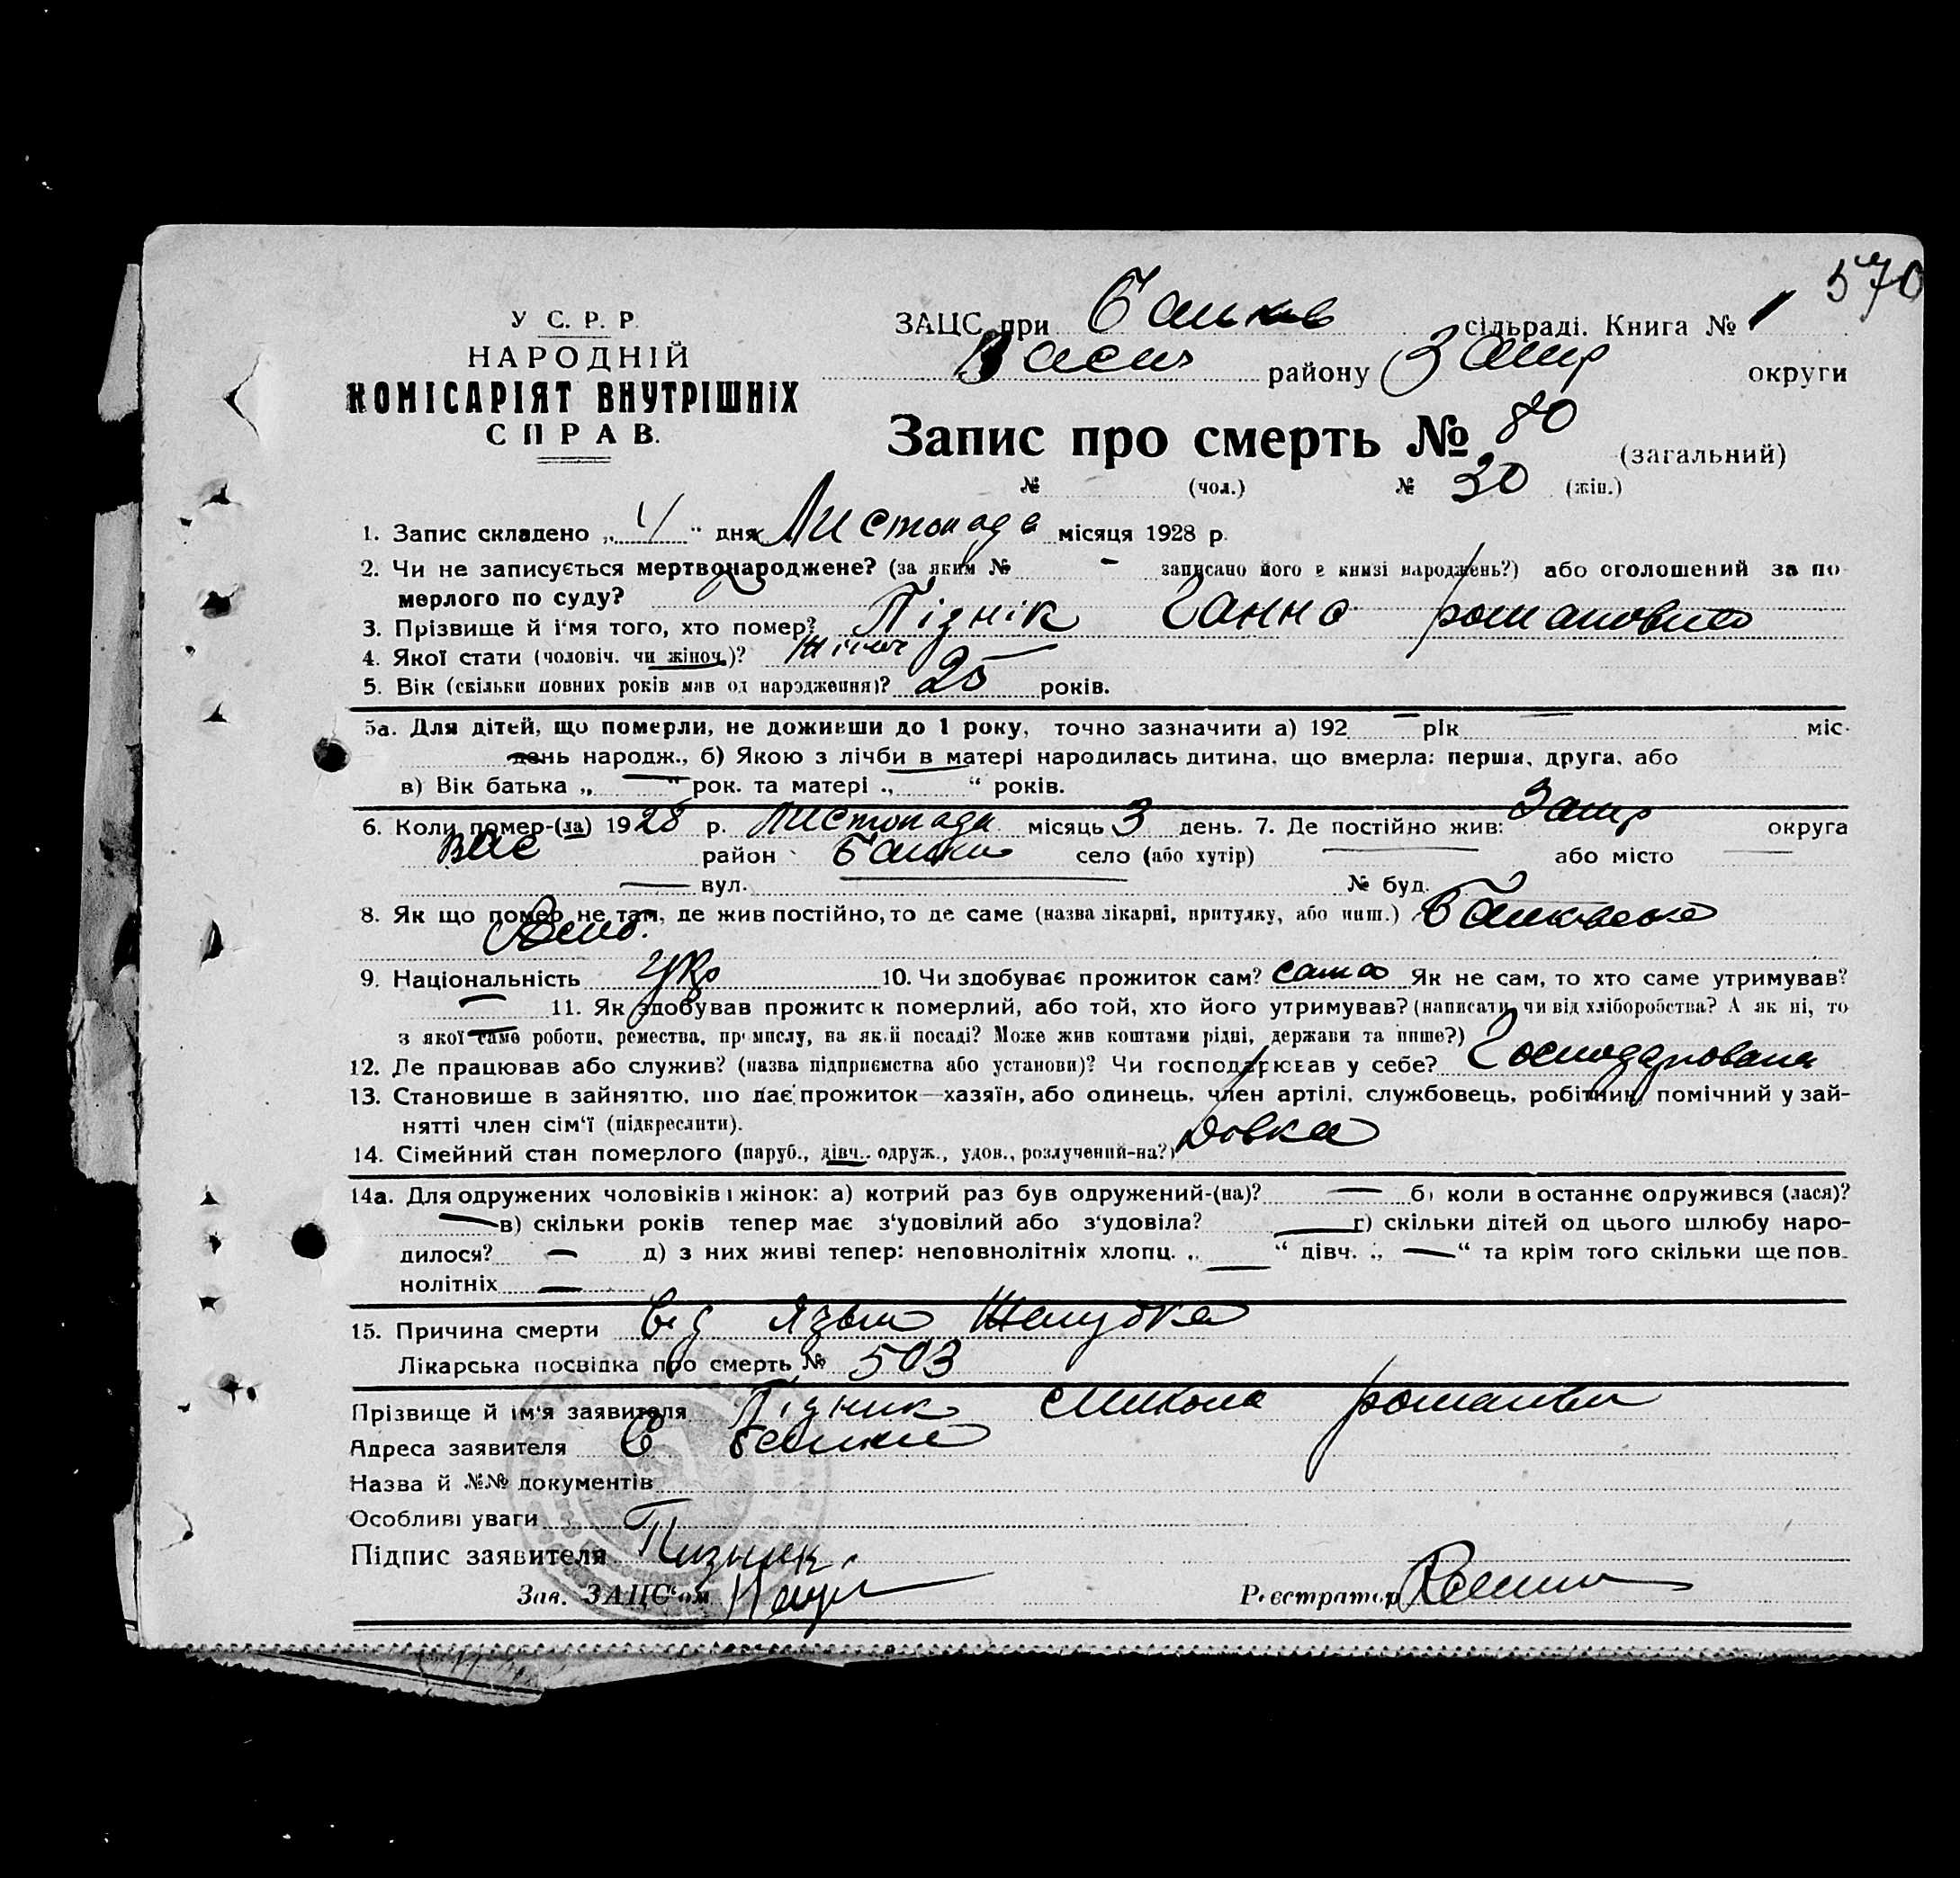 570
У С. Р. Р.
НАРОДНІЙ
КОМІСАРІЯТ ВНУТРІШНІХ
СПРАВ.
ЗАЦС при сільраді. Книга № 1
Васил району Запор округи
Запис про смерть № 80 (загальний)
№ (чол.) № 30 (жін.)
1. Запис складено „ 4 “ дня Листопада місяця 1928 р.
2. Чи не записується мертвонароджене? (за яким № - записано його в книзі народжень?) або оголошений за по
мерлого по суду?
3. Прізвище й і'мя того, хто помер? Пізнік Ганна Романовна
4. Якої стати (чоловіч. чи жіноч.)? Жіноч
5. Вік (скільки повних років мав од народження)? 25 років.
5а. Для дітей, що померли, не доживши до 1 року, точно зазначити а) 192 — рік — міс.
день народж., б) Якою з лічби в матері народилась дитина, що вмерла: перша, друга, або
в) Вік батька „ — “ рок. та матері „ “ років.
6. Коли помер-(ла) 1928 р. Листопада місяць 3 день. 7. Де постійно жив: Запор округа
Вас район село (або хутір) — або місто —
— вул. — № буд.
8. Як що помер не там, де жив постійно, то де саме (назва лікарні, притулку, або инш.)
9. Національність Укр 10. Чи здобуває прожиток сам? сама Як не сам, то хто саме утримував?
— 11. Як здобував прожиток померлий, або той, хто його утримував? (написати, чи від хліборобства? А як ні, то
з якої саме роботи, ремества, промислу, на якій посаді? Може жив коштами рідні, держави та инше?)
12. Де працював або служив? (назва підприємства або установи)? Чи господарював у себе? Господарювала
13. Становище в зайняттю, що дає прожиток—хазяїн, або одинець, член артілі, службовець, робітник, помічний у зай-
нятті член сім'ї (підкреслити).
14. Сімейний стан померлого (паруб., дівч., одруж., удов., розлучений-на?) Дівка
14а. Для одружених чоловіків і жінок: а) котрий раз був одружений-(на)? — б) коли востаннє одружився (лася)?
— в) скільки років тепер має з'удовілий або з'удовіла? — г) скільки дітей од цього шлюбу наро-
дилося? — д) з них живі тепер: неповнолітніх хлопц. „ — “ дівч. „ — “ та крім того скільки ще пов-
нолітніх —
15. Причина смерти Від Язви Желудка
Лікарська посвідка про смерть № 503
Прізвище й ім'я заявителя Пізник Микола Романови
Адреса заявителя С
Назва й №№ документів
Особливі уваги
Підпис заявителя Пизник
Зав. ЗАЦС'ом Реєстратор